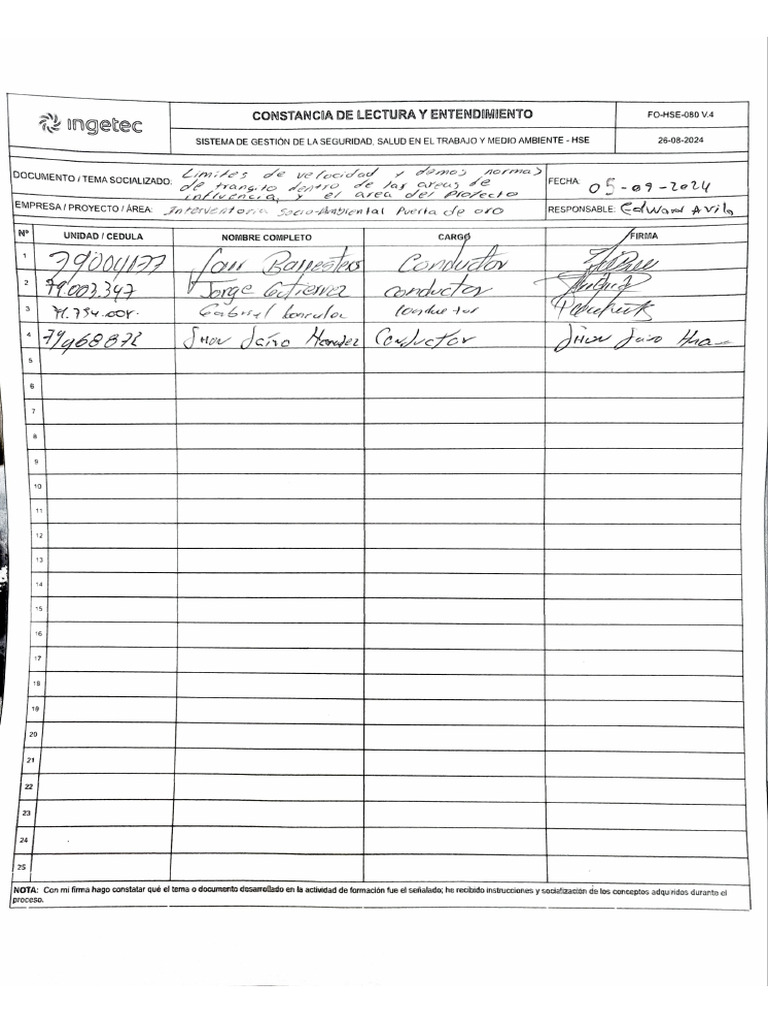 ingetec
CONSTANCIA DE LECTURA Y ENTENDIMIENTO
FO-HSE-080 V.4
SISTEMA DE GESTIÓN DE LA SEGURIDAD, SALUD EN EL TRABAJO Y MEDIO AMBIENTE - HSE
26-08-2024
DOCUMENTO / TEMA SOCIALIZADO: Limites de velocidad y demas normas
de transito dentro de las areas de
influencia, y el area del Proyecto
FECHA: 05-09-2024
EMPRESA / PROYECTO / ÁREA: Interventoria Socio-Ambiental Puerta de oro
RESPONSABLE: Edward Avila
Nº UNIDAD / CEDULA NOMBRE COMPLETO CARGO FIRMA
1 79004177 Conductor
2 79.003.347 Jorge Gutierrez conductor
3 Gabriel conductor
4 79968872 Jhon Jairo Conductor Jhon Jairo
5
6
7
8
9
10
11
12
13
14
15
16
17
18
19
20
21
22
23
24
25
NOTA: Con mi firma hago constatar qué el tema o documento desarrollado en la actividad de formación fue el señalado; he recibido instrucciones y socialización de los conceptos adquiridos durante el
proceso.